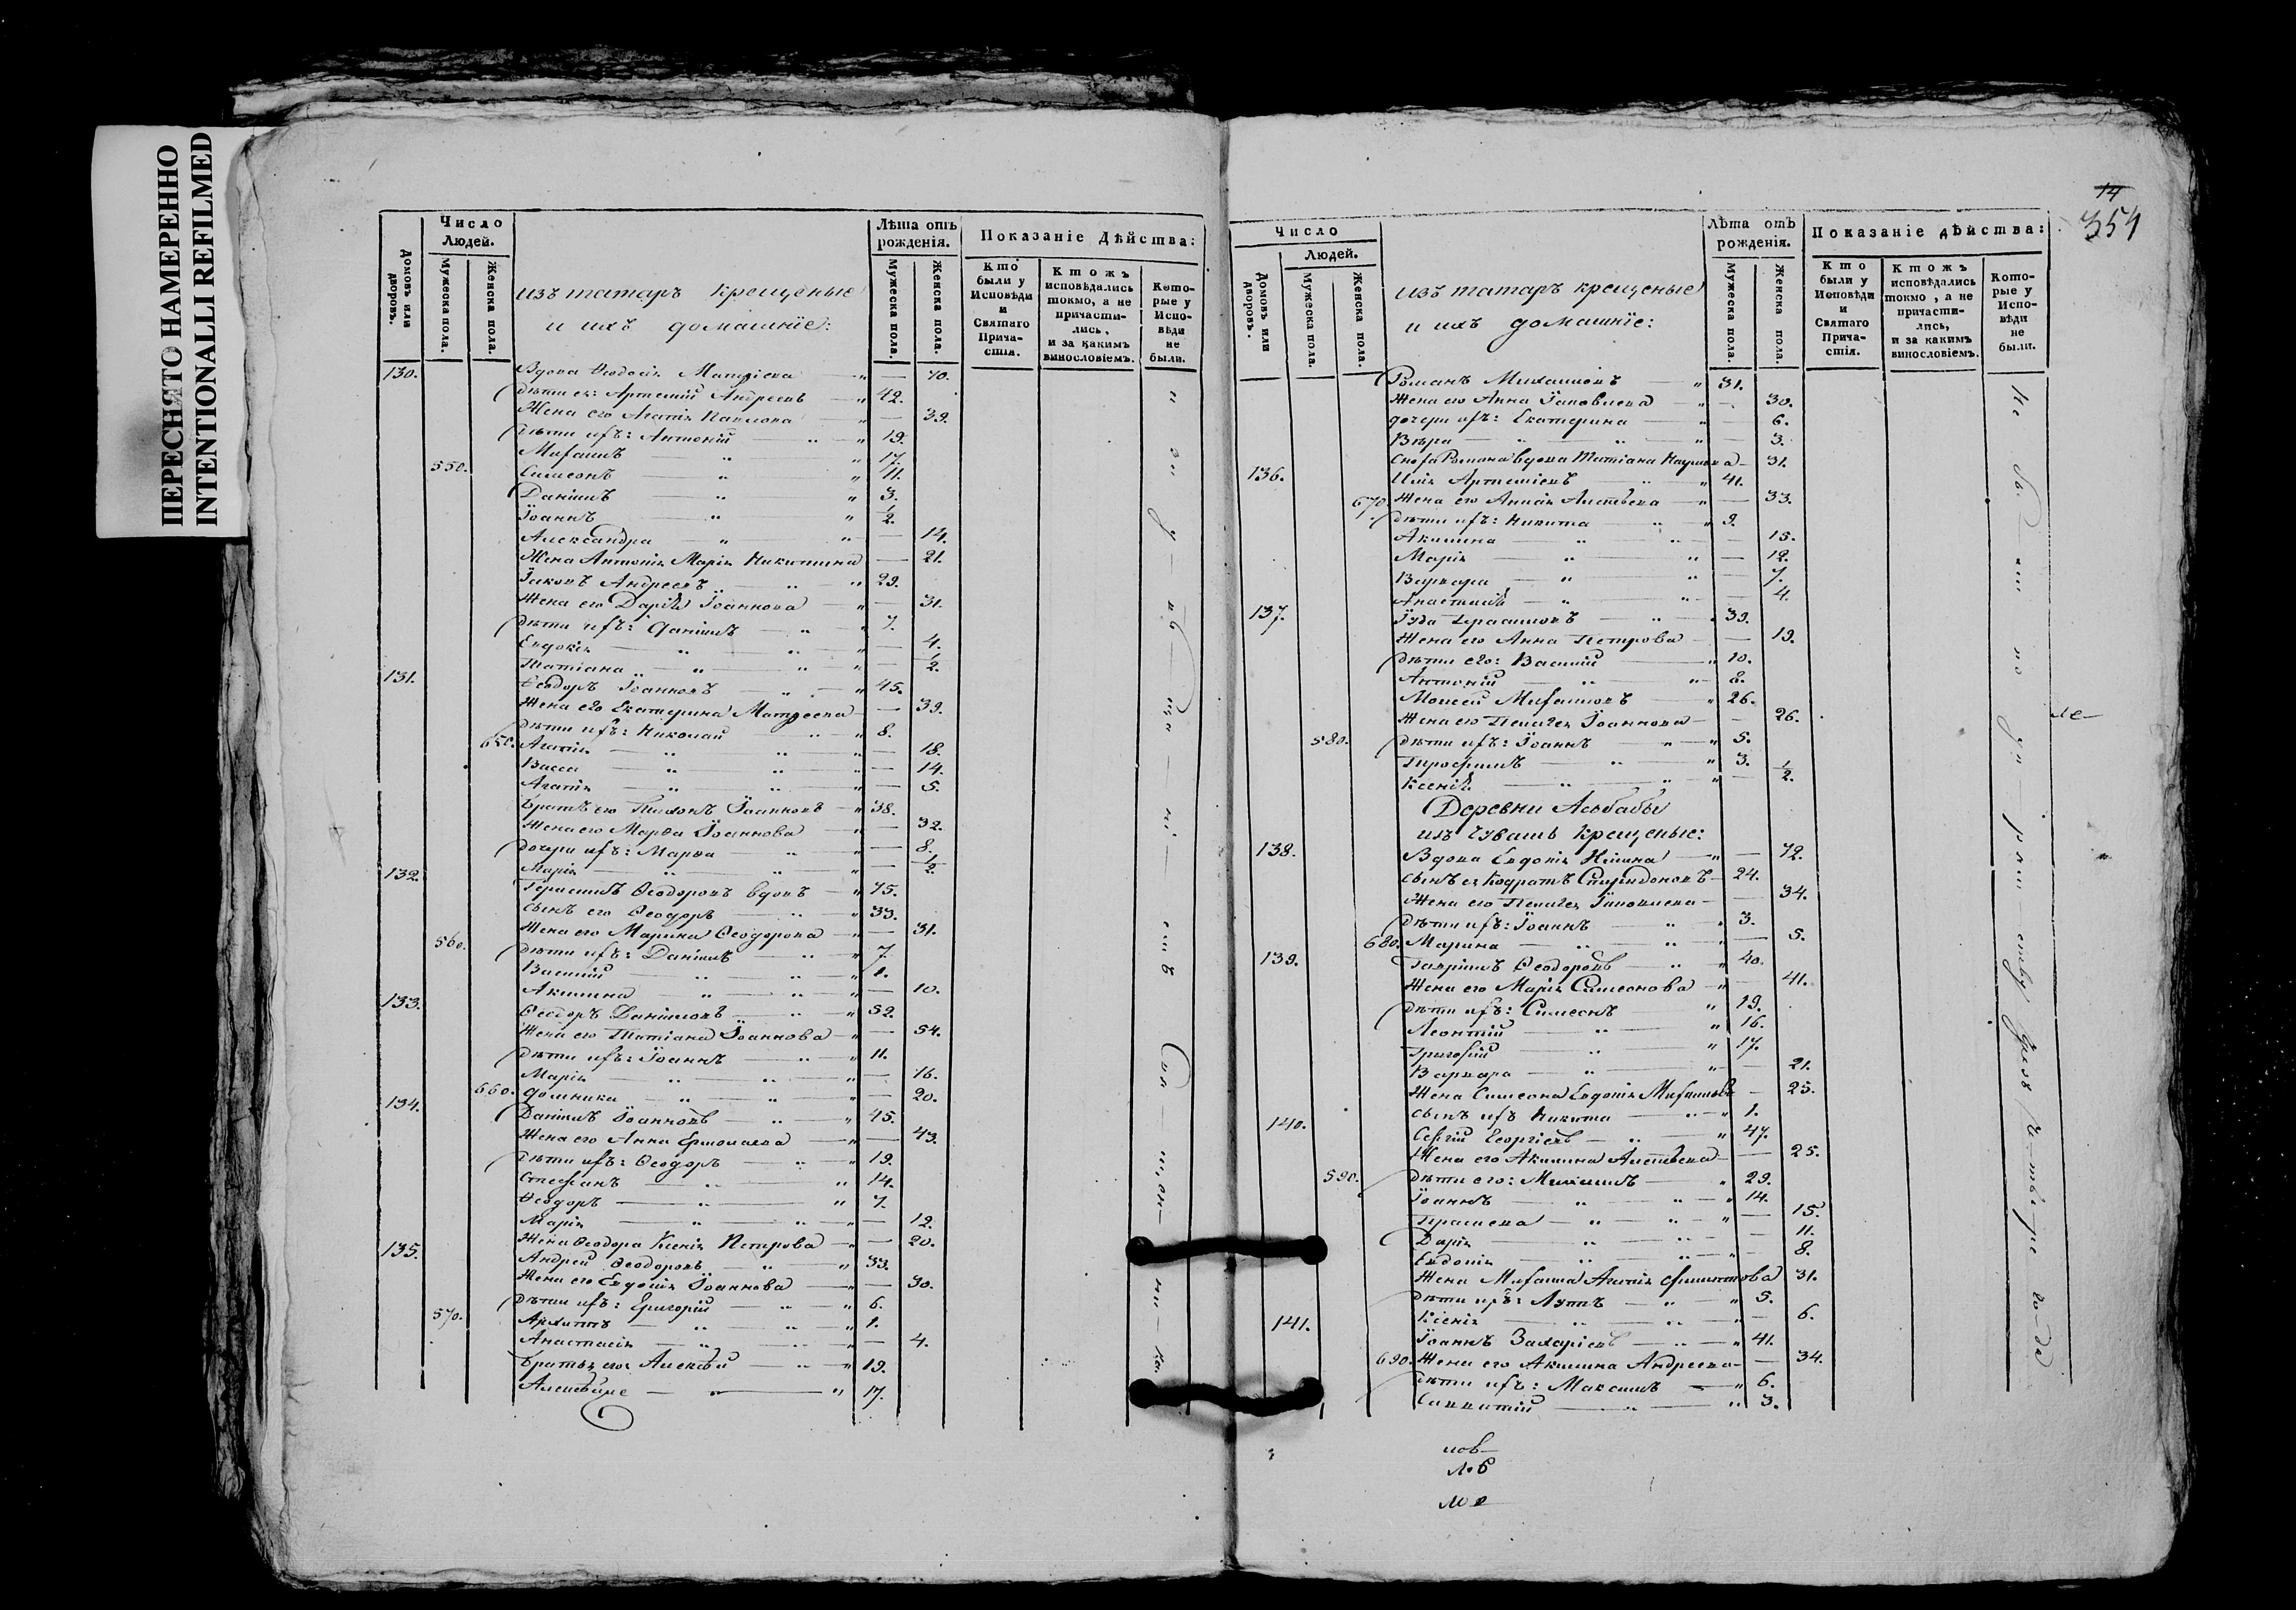 ПЕРЕСНЯТО НАМЕРЕННО
INTENTIONALLI REFILMED
Число Людей.
Домовъ или дворовъ.
Мужеска пола.
Женска пола.
изъ татаръ крещеные
и ихъ домашніе:
Лѣта отъ рожденія.
Мужеска пола.
Женска пола.
Показаніе Дѣйства:
Кто были у Исповѣди и Святаго Причастія.
Ктожъ исповѣдались токмо, а не причастились, и за какимъ винословіемъ.
Которые у Исповѣди не были.
130. Вдова Ѳеодосія Матвѣева — 70.
Дѣти ея: Артемій Андреевъ 42.
Жена его Агапія Павлова — 39.
Дѣти ихъ: Антоній 19.
Михаилъ 17.
550. Симеонъ 11.
Даніилъ 3.
Іоаннъ ½
Александра — 14.
Жена Антонія Марія Никитина — 21.
Іаковъ Андреевъ 29.
Жена его Дарія Іоаннова — 31.
Дѣти ихъ: Даніилъ 7.
Евдокія — 4.
Татіана — ½
131. Ѳеодоръ Іоанновъ 45.
Жена его Екатерина Матвеева — 39.
Дѣти ихъ: Николай 8.
650. — 18.
Васса — 14.
Агапія — 5.
Братъ его Тихонъ Іоанновъ 38.
Жена его Марѳа Іоаннова — 32.
Дочери ихъ: Марѳа — 8.
Марія — ½
132. Герасимъ Ѳеодоровъ вдовъ 75.
Сынъ его Ѳеодоръ 33.
Жена его Марина Ѳеодорова — 31.
560. Дѣти ихъ: Даніилъ 7.
Василій 1.
Акилина — 10.
133. Ѳеодоръ Даніиловъ 52.
Жена его Татіана Іоаннова — 54.
Дѣти ихъ: Іоаннъ 11.
Марія — 16.
660. Домника — 20.
134. Даніилъ Іоанновъ 45.
Жена его Анна Ермолаева — 43.
Дѣти ихъ: Ѳеодоръ 19.
Стефанъ 14.
Ѳеодоръ 7.
Марія — 12.
Жена Ѳеодора Ксенія Петрова — 20.
135. Андрей Ѳеодоровъ 33.
Жена его Евдокія Іоаннова — 30.
Дѣти ихъ: Григорій 6.
570. Архиппъ 1.
Анастасія — 4.
Братья его: Алексѣй 19.
17.
14
354
Число Людей.
Домовъ или дворовъ.
Мужеска пола.
Женска пола.
изъ татаръ крещеные
и ихъ домашніе:
Лѣта отъ рожденія.
Мужеска пола.
Женска пола.
Показаніе дѣйства:
Кто были у Исповѣди и Святаго Причастія.
Ктожъ исповѣдались токмо, а не причастились, и за какимъ винословіемъ.
Которые у Исповѣди не были.
Романъ Михаиловъ 31.
Жена его Анна Іаковлева — 30.
дочери ихъ: Екатерина — 6.
Вѣра — 3.
Сноха Романа вдова Татіана Наумова — 31.
136. Илія Артеміевъ 41.
670. Жена его — 33.
Дѣти ихъ: Никита 9.
Акилина — 15.
Марія — 12.
Варвара — 7.
Анастасія — 4.
137. Іуда Герасимовъ 39.
Жена его Анна Петрова — 19.
Дѣти его: Василій 10.
Антоній 8.
Моисей Михаиловъ 26.
Жена его Пелагея Іоаннова — 26.
580. Дѣти ихъ: Іоаннъ 5.
Трофимъ 3.
Ксенія — ½
Деревни Альбабы
изъ Чувашъ крещеные:
138. Вдова Евдокія — 72.
Сынъ ея Кодратъ Спиридоновъ 24.
Жена его Пелагея Іаковлева — 34.
Дѣти ихъ: Іоаннъ 3.
680. Марина — 5.
139. Гавріилъ Ѳеодоровъ 40.
Жена его Марія Симеонова — 41.
Дѣти ихъ: Симеонъ 19.
Леонтій 16.
Григорій 17.
Варвара — 21.
Жена Симеона Евдокія Михаилова — 25.
Сынъ ихъ Никита 1.
140. Сергій Георгіевъ 47.
Жена его Акилина — 25.
590. Дѣти его: Михаилъ 29.
Іоаннъ 14.
— 15.
Дарія — 11.
Евдокія — 8.
Жена Михаила Агапія Филиппова 31.
Дѣти ихъ: 5.
Ксенія — 6.
141. Іоаннъ Захаріевъ 41.
690. Жена его Акилина Андреева — 34.
Дѣти ихъ: Максимъ 6.
Савватій 3.